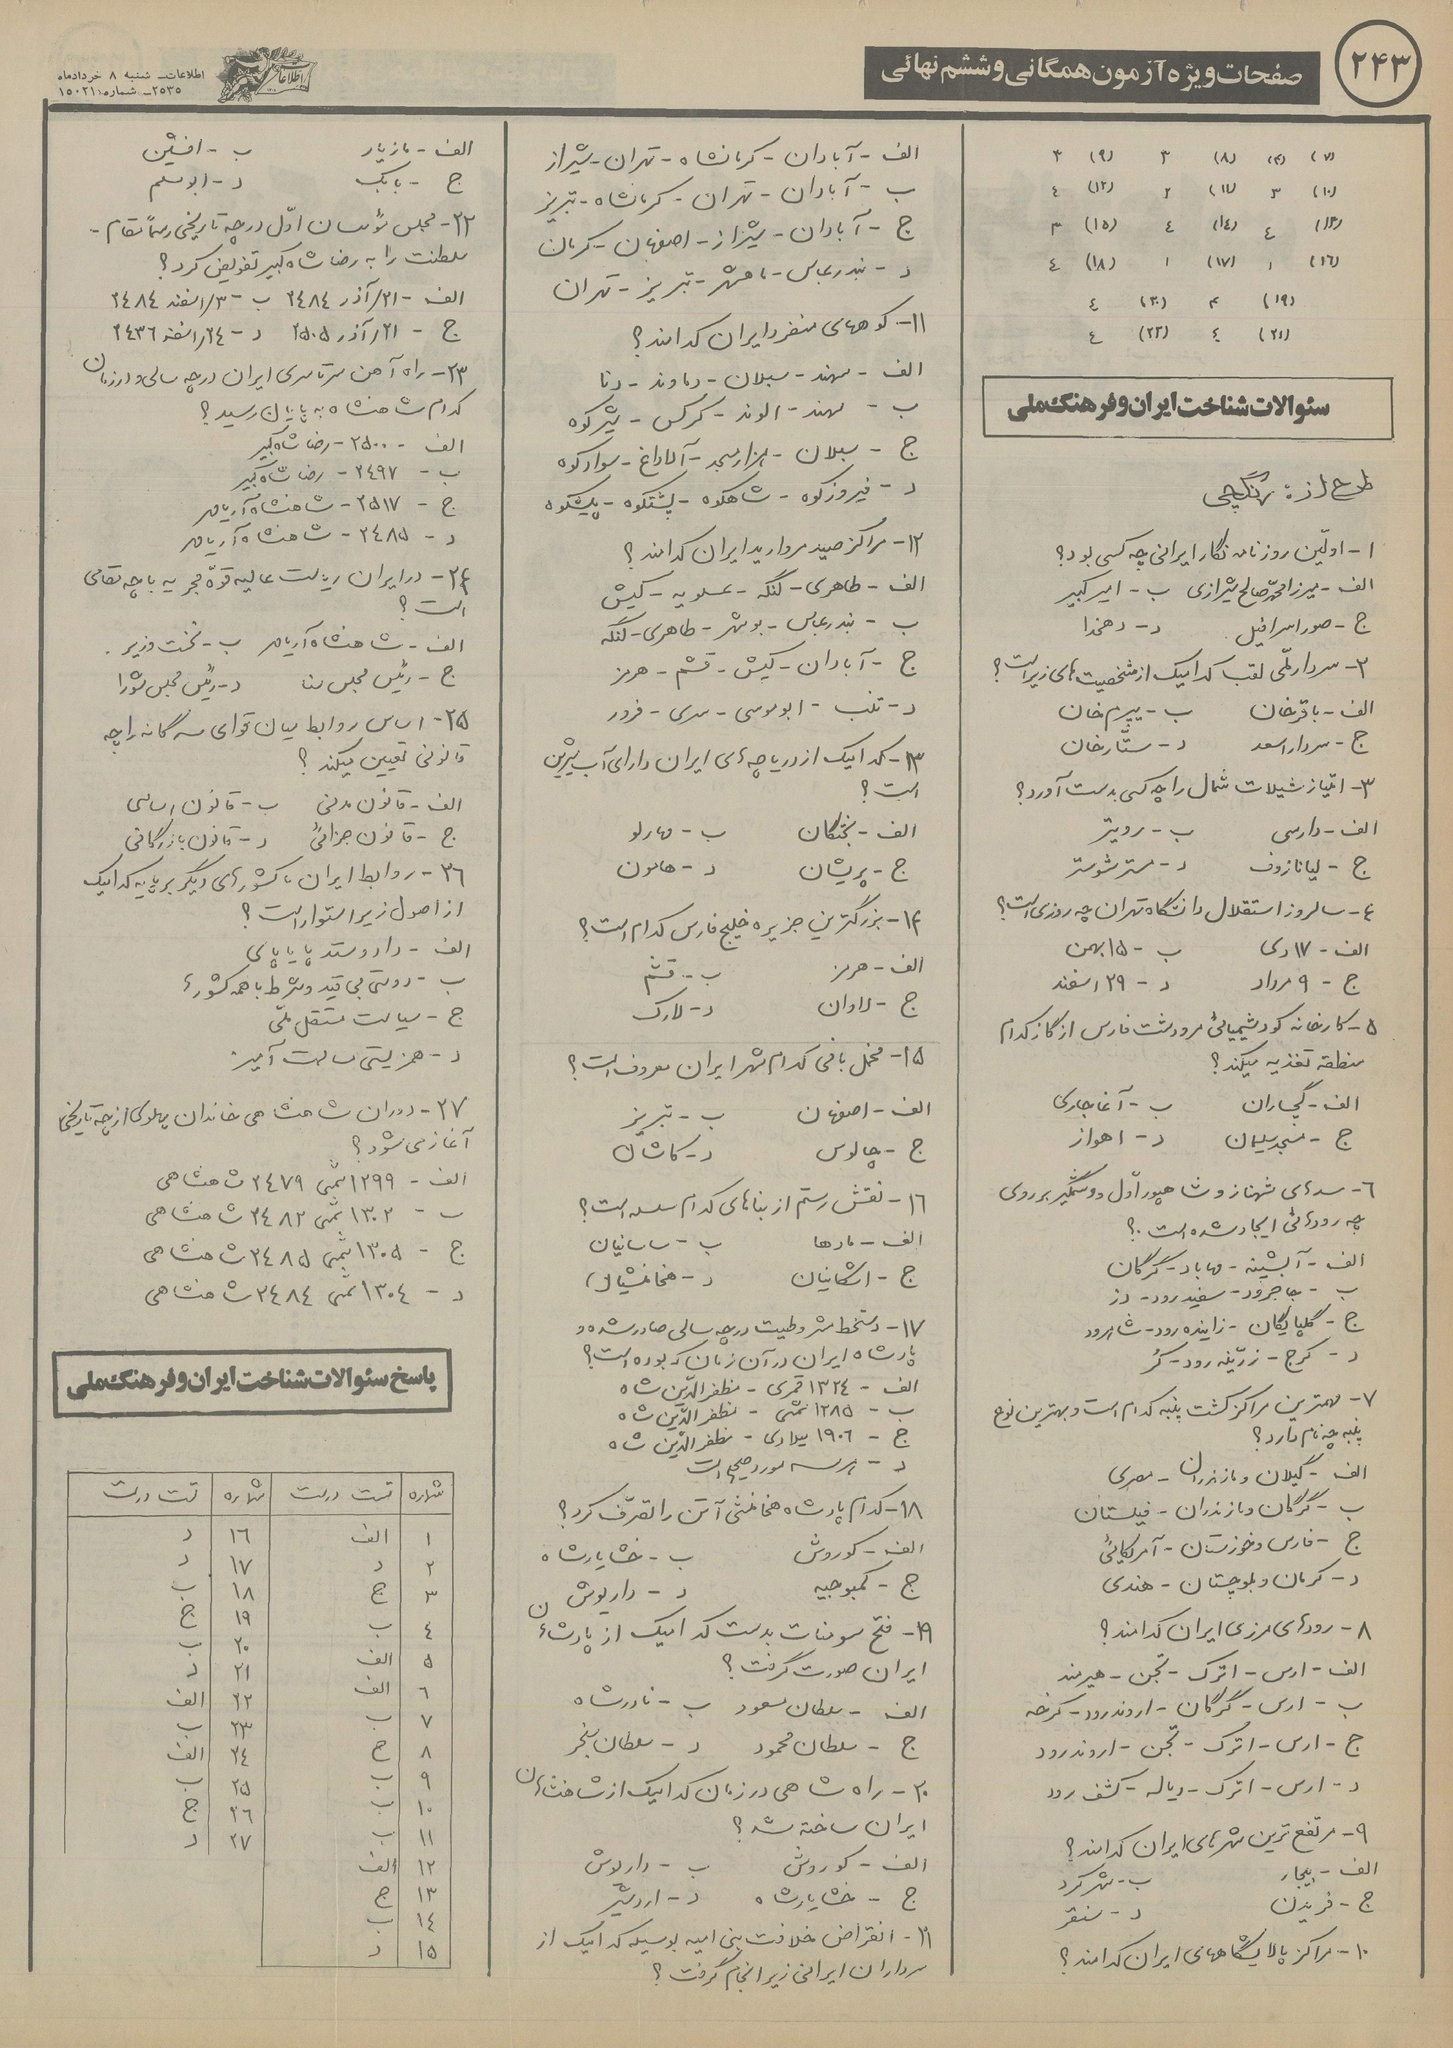 ۲۴۳
صفحات ویژه آزمون همگانی و ششم نهائی
اطلاعات
اطلاعات ـ شنبه ۸ خردادماه
۲۵۳۵ ـ شماره: ۱۵۰۲۱
(۷) (۸) ۳ (۹) ۳
(۱۰) ۳ (۱۱) ۲ (۱۲) ٤
(۱۳) ٤ (۱٤) ٤ (۱۵) ۳
(۱٦) ۱ (۱۷) ۱ (۱۸) ٤
(۱۹) (۲۰) ٤
(۲۱) ٤ (۲۲) ٤
سئوالات شناخت ایران و فرهنگ ملی
طرح از:
۱- اولّین روزنامه نگار ایرانی چه کسی بود؟
الف - میرزا محمّد صالح شیرازی ب - امیر کبیر
ج - صور اسرافیل د - دهخدا
۲- سردار ملّی لقب کدامیک از شخصیت های زیر است؟
الف - باقرخان ب - یپرم خان
ج - سردار اسعد د - ستّارخان
۳- امتیاز شیلات شمال را چه کسی بدست آورد؟
الف - دارسی ب - رویتر
ج - لیانازوف د - مستر شوستر
٤- سالروز استقلال دانشگاه تهران چه روزی است؟
الف - ۱۷ دی ب - ۱۵ بهمن
ج - ۹ مرداد د - ۲۹ اسفند
۵- کارخانه کود شیمیائی مرودشت فارس از گاز کدام
منطقه تغذیه میکند؟
الف - گچساران ب - آغاجاری
ج - مسجد سلیمان د - اهواز
٦- سدهای شهناز و شاهپور اوّل و وشمگیر بر روی
چه رودهائی ایجاد شده است؟
الف - آبشینه - مهاباد - گرگان
ب - جاجرود - سفیدرود - دز
ج - گلپایگان - زاینده رود - شاهرود
د - کرج - زرّینه رود - کُر
۷- مهمترین مراکز کشت پنبه کدام است و بهترین نوع
پنبه چه نام دارد؟
الف - گیلان و مازندران - مصری
ب - گرگان و مازندران - فیلستان
ج - فارس و خوزستان - آمریکائی
د - کرمان و بلوچستان - هندی
۸- رودهای مرزی ایران کدامند؟
الف - ارس - اترک - تجن - هیرمند
ب - ارس - گرگان - اروندرود - کرخه
ج - ارس - اترک - تجن - اروندرود
د - ارس - اترک - دیاله - کشف رود
۹- مرتفع ترین شهرهای ایران کدامند؟
الف - بیجار ب - شهرکرد
ج - فریدن د - سنقر
۱۰- مراکز پالایشگاههای ایران کدامند؟
الف - آبادان - کرمانشاه - تهران - شیراز
ب - آبادان - تهران - کرمانشاه - تبریز
ج - آبادان - شیراز - اصفهان - کرمان
د - بندرعباس - ماهشهر - تبریز - تهران
۱۱- کوههای منفرد ایران کدامند؟
الف - سهند - سبلان - دماوند - دنا
ب - سهند - الوند - کرکس - شیرکوه
ج - سبلان - هزار مسجد - آلاداغ - سوادکوه
د - فیروزکوه - شاهکوه - پشتکوه - پیشکوه
۱۲- مراکز صید مروارید ایران کدامند؟
الف - طاهری - لنگه - عسلویه - کیش
ب - بندرعباس - بوشهر - طاهری - لنگه
ج - آبادان - کیش - قشم - هرمز
د - تنب - ابوموسی - سری - فرور
۱۳- کدامیک از دریاچه های ایران دارای آب شیرین
است؟
الف - بختگان ب - مهارلو
ج - پریشان د - هامون
۱۴- بزرگترین جزیره خلیج فارس کدام است؟
الف - هرمز ب - قشم
ج - لاوان د - لارک
۱۵- مخمل بافی کدام شهر ایران معروف است؟
الف - اصفهان ب - تبریز
ج - چالوس د - کاشان
۱٦- نقش رستم از بناهای کدام سلسله است؟
الف - مادها ب - ساسانیان
ج - اشکانیان د - هخامنشیان
۱۷- دستخط مشروطیت در چه سالی صادر شده و
پادشاه ایران در آن زمان که بوده است؟
الف - ۱۳۲٤ قمری - مظفرالدّین شاه
ب - ۱۲۸۵ شمسی - مظفرالدّین شاه
ج - ۱۹۰٦ میلادی - مظفرالدّین شاه
د - هر سه مورد صحیح است
۱۸- کدام پادشاه هخامنشی آتن را تصرّف کرد؟
الف - کوروش ب - خشایارشاه
ج - کمبوجیه د - داریوش
۱۹- فتح سومنات بدست کدامیک از پادشاهان
ایران صورت گرفت؟
الف - سلطان مسعود ب - نادرشاه
ج - سلطان محمود د - سلطان سنجر
۲۰- راه شاهی در زمان کدامیک از شاهنشاهان
ایران ساخته شد؟
الف - کوروش ب - داریوش
ج - خشایارشاه د - اردشیر
۲۱- انقراض خلافت بنی امیه بوسیله کدامیک از
سرداران ایرانی زیر انجام گرفت؟
الف - مازیار ب - افشین
ج - بابک د - ابومسلم
۲۲- مجلس مؤسسان اوّل در چه تاریخی رسماً مقام -
سلطنت را به رضا شاه کبیر تفویض کرد؟
الف - ۲۱/آذر ۲٤۸٤ ب - ۳/اسفند ۲٤۸٤
ج - ۲۱/آذر ۲۵۰۵ د - ۲٤/اسفند ۲٤۳٦
۲۳- راه آهن سرتاسری ایران در چه سالی و در زمان
کدام شاهنشاه به پایان رسید؟
الف - ۲۵۰۰ - رضا شاه کبیر
ب - ۲٤۹۷ - رضا شاه کبیر
ج - ۲۵۱۷ - شاهنشاه آریامهر
د - ۲٤۸۵ - شاهنشاه آریامهر
۲٤- در ایران ریاست عالیه قوّه مجریه با چه مقامی
است؟
الف - شاهنشاه آریامهر ب - نخست وزیر
ج - رئیس مجلس سنا د - رئیس مجلس شورا
۲۵- اساس روابط میان قوای سه گانه را چه
قانونی تعیین میکند؟
الف - قانون مدنی ب - قانون اساسی
ج - قانون جزائی د - قانون بازرگانی
۲٦- روابط ایران با کشورهای دیگر بر پایه کدامیک
از اصول زیر استوار است؟
الف - داد و ستد پایاپای
ب - دوستی بی قید و شرط با همه کشورها
ج - سیاست مستقل ملّی
د - همزیستی مسالمت آمیز
۲۷- دوران شاهنشاهی خاندان پهلوی از چه تاریخی
آغاز می شود؟
الف - ۱۲۹۹ شمسی ۲٤۷۹ شاهنشاهی
ب - ۱۳۰۲ شمسی ۲٤۸۲ شاهنشاهی
ج - ۱۳۰۵ شمسی ۲٤۸۵ شاهنشاهی
د - ۱۳۰٤ شمسی ۲٤۸٤ شاهنشاهی
پاسخ سئوالات شناخت ایران و فرهنگ ملی
شماره تست درست شماره تست درست
۱ الف ۱٦ د
۲ د ۱۷ د
۳ ج ۱۸ ب
٤ ب ۱۹ ج
۵ الف ۲۰ ب
٦ الف ۲۱ د
۷ ب ۲۲ الف
۸ ج ۲۳ ب
۹ ب ۲٤ الف
۱۰ ب ۲۵ ب
۱۱ ب ۲٦ ج
۱۲ الف ۲۷ د
۱۳ ج
۱٤ ب
۱۵ د